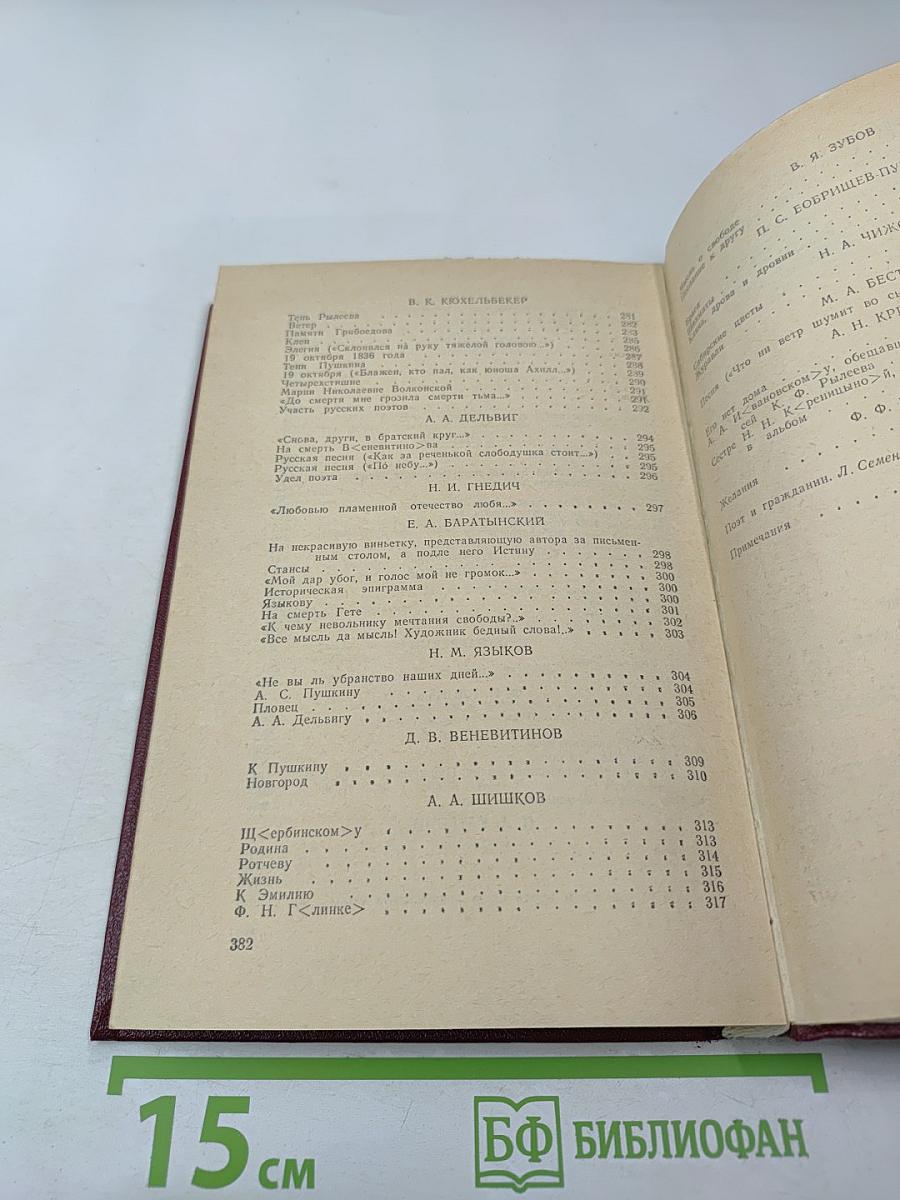 В. К. КЮХЕЛЬБЕКЕР
Тень Рылеева . . . . . . . . . . 281
Ветер . . . . . . . . . . 282
Памяти Грибоедова . . . . . . . . . . 283
Клен . . . . . . . . . . 285
Элегия («Склонился на руку тяжелой головою...») . . 286
19 октября 1836 года . . . . . . . . . . 287
Тени Пушкина . . . . . . . . . . 288
19 октября («Блажен, кто пал, как юноша Ахилл...») . . 289
Четырехстишие . . . . . . . . . . 290
Марии Николаевне Волконской . . . . . . . . . . 291
«До смерти мне грозила смерти тьма...» . . . . . . 291
Участь русских поэтов . . . . . . . . . . 292
А. А. ДЕЛЬВИГ
«Снова, други, в братский круг...» . . . . . . . . 294
На смерть В<еневитино>ва . . . . . . . . . . 295
Русская песня («Как за реченькой слободушка стоит...») . . 295
Русская песня («По́ небу...») . . . . . . . . . . 295
Удел поэта . . . . . . . . . . 296
Н. И. ГНЕДИЧ
«Любовью пламенной отечество любя...» . . . . . . . . 297
Е. А. БАРАТЫНСКИЙ
На некрасивую виньетку, представляющую автора за письмен-
ным столом, а подле него Истину . . . . . . . . 298
Стансы . . . . . . . . . . 298
«Мой дар убог, и голос мой не громок...» . . . . . . . . 300
Историческая эпиграмма . . . . . . . . . . 300
Языкову . . . . . . . . . . 300
На смерть Гете . . . . . . . . . . 301
«К чему невольнику мечтания свободы?..» . . . . . . . . 302
«Все мысль да мысль! Художник бедный слова!..» . . . . . 303
Н. М. ЯЗЫКОВ
«Не вы ль убранство наших дней...» . . . . . . . . . . 304
А. С. Пушкину . . . . . . . . . . 304
Пловец . . . . . . . . . . 305
А. А. Дельвигу . . . . . . . . . . 306
Д. В. ВЕНЕВИТИНОВ
К Пушкину . . . . . . . . . . 309
Новгород . . . . . . . . . . 310
А. А. ШИШКОВ
Щ<ербинском>у . . . . . . . . . . 313
Родина . . . . . . . . . . 313
Ротчеву . . . . . . . . . . 314
Жизнь . . . . . . . . . . 315
К Эмилию . . . . . . . . . . 316
Ф. Н. Г<линке> . . . . . . . . . . 317
382
В. Я. ЗУБОВ
о свободе
к другу
П. С. БОБРИЩЕВ-ПУ
дрова и дровни
Н. А. ЧИЖО
Сибирские цветы
М. А. БЕСТ
Песня («Что ни ветр шумит во сы
А. Н. КРЕ
Его нет дома
А. А. И<вановском>у, обещавш
сей К. Ф. Рылеева
Сестре Н. Н. К<реницыно>й,
в альбом
Ф. Ф.
Желания
Поэт и гражданин. Л. Семен
Примечания
15 см
БФ БИБЛИОФАН